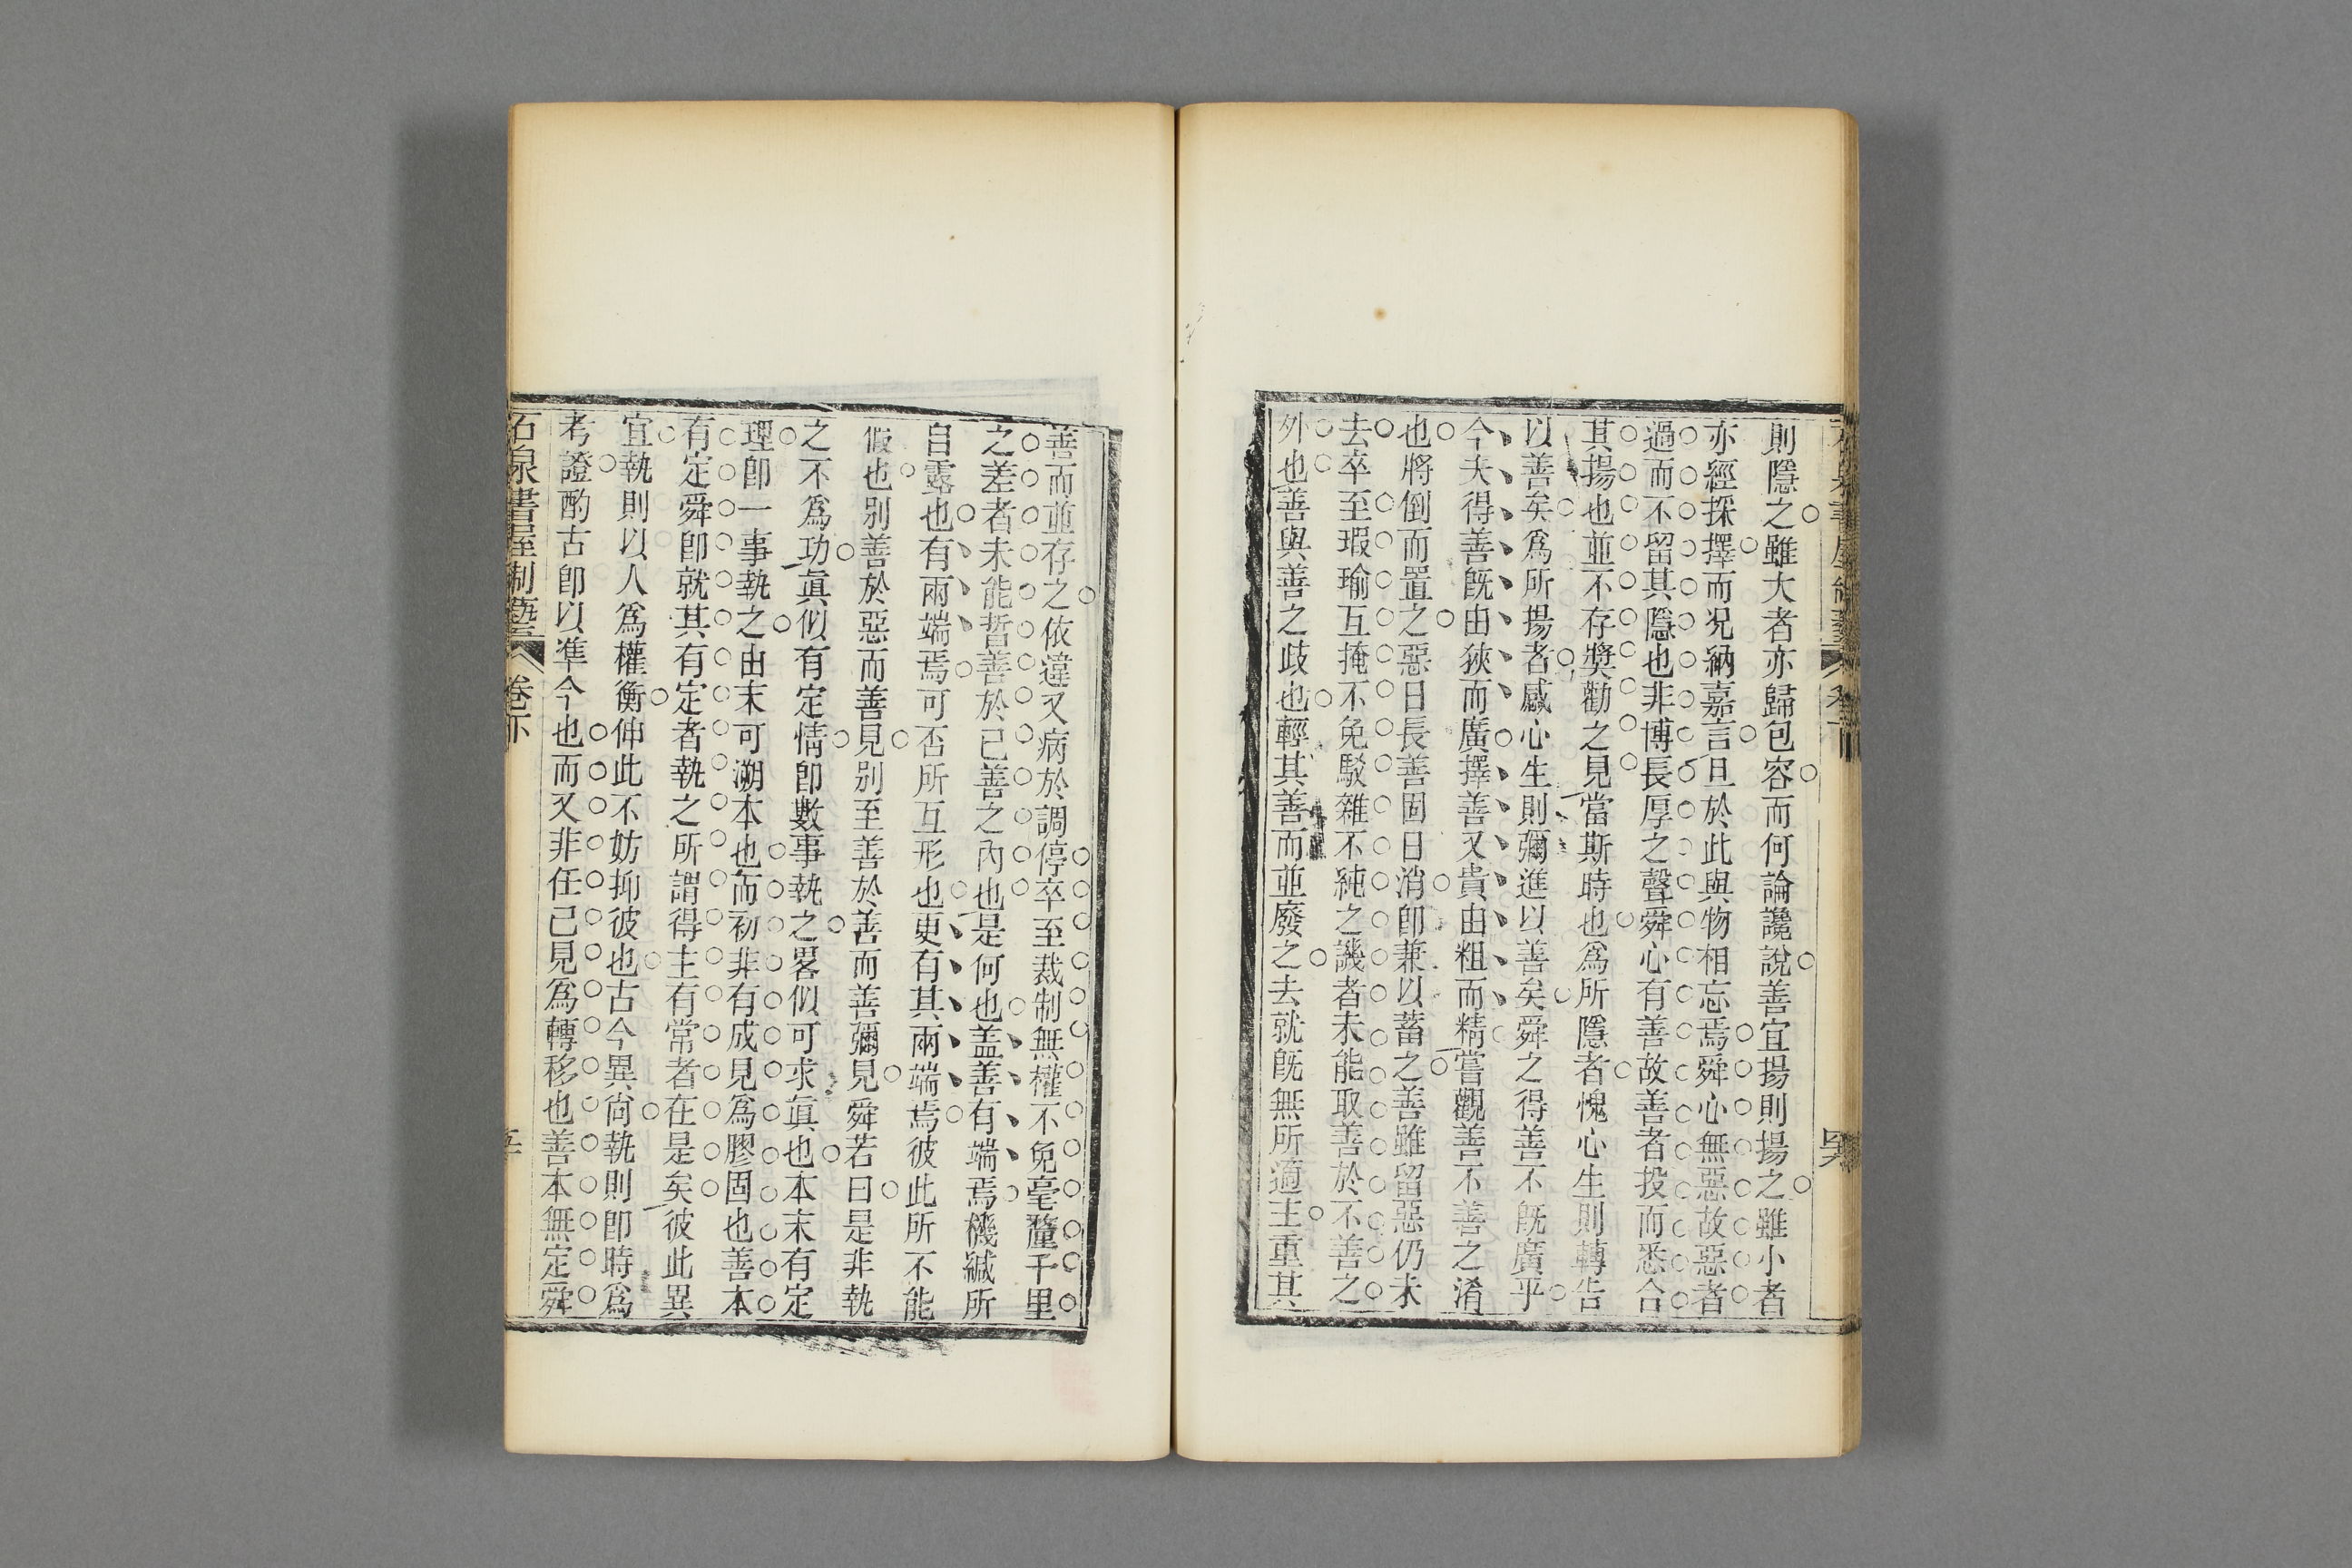 則隱之雖大者亦歸包容而何論讒說善宜揚則揚之雖小者
亦經採擇而況納嘉言且於此與物相忘焉舜心無惡故惡者
過而不留其隱也非博長厚之聲舜心有善故善者投而悉合
其揚也並不存獎勸之見當斯時也爲所隱者愧心生則轉告
以善矣爲所揚者感心生則彌進以善矣舜之得善不旣廣乎
今夫得善旣由狹而廣擇善又貴由粗而精嘗觀善不善之淆
也將倒而置之惡日長善固日消卽兼以蓄之善雖留惡仍未
去卒至瑕瑜互掩不免駁雜不純之譏者未能取善於不善之
外也善與善之歧也輕其善而並廢之去就旣無所適主重其
善而並存之依違又病於調停卒至裁制無權不免毫釐千里
之差者未能晢善於己善之內也是何也盖善有端焉機緘所
自露也有兩端焉可否所互形也更有其兩端焉彼此所不能
假也別善於惡而善見別至善於善而善彌見舜若曰是非執
之不爲功眞似有定情卽數事執之畧似可求眞也本末有定
理卽一事執之由末可溯本也而初非有成見爲膠固也善本
有定舜卽就其有定者執之所謂得主有常者在是矣彼此異
宜執則以人爲權衡伸此不妨抑彼也古今異尚執則卽時爲
考證酌古卽以準今也而又非任己見爲轉移也善本無定舜
石泉書屋制藝 卷下